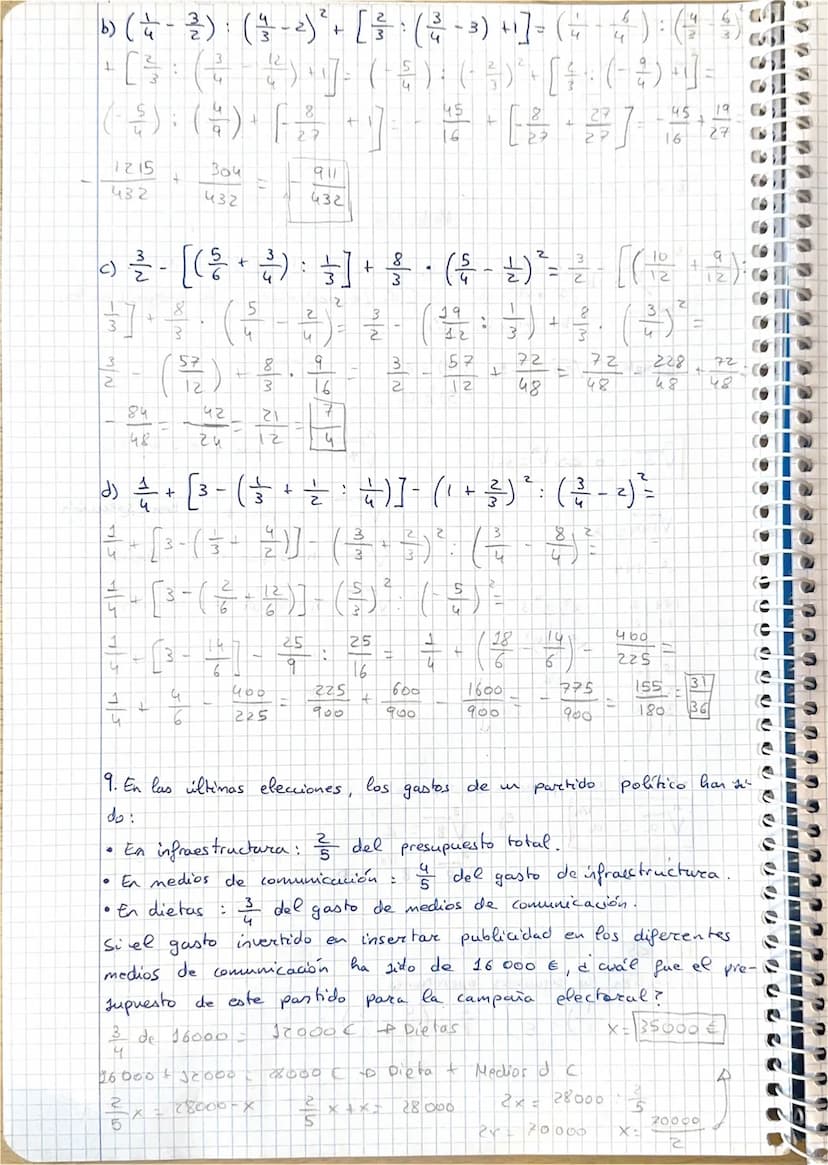 b) (1/4 - 3/2) : (4/3 - 2)² + [2/3 : (3/4 - 3) + 1] = (1/4 - 6/4) : (4/3 - 6/3)²
+ [2/3 : (3/4 - 12/4) + 1] = (-5/4) : (-2/3)² + [2/3 : (-9/4) + 1] =
(-5/4) : (4/9) + [-8/27 + 1] = -45/16 + [-8/27 + 27/27] = -45/16 + 19/27 =
-1215/432 + 304/432 = -911/432
c) 3/2 - [(5/6 + 3/4) : 1/3] + 8/3 · (5/4 - 1/2)² = 3/2 - [(10/12 + 9/12) :
1/3] + 8/3 · (5/4 - 2/4)² = 3/2 - (19/12 : 1/3) + 8/3 · (3/4)² =
3/2 - (57/12) + 8/3 · 9/16 = 3/2 - 57/12 + 72/48 = 72/48 - 228/48 + 72/48 =
-84/48 = -42/24 = 21/12 = 7/4
d) 1/4 + [3 - (1/3 + 1/2 : 1/4)] - (1 + 2/3)² : (3/4 - 2)² =
1/4 + [3 - (1/3 + 4/2)] - (3/3 + 2/3)² : (3/4 - 8/4)² =
1/4 + [3 - (2/6 + 12/6)] - (5/3)² : (-5/4)² =
1/4 - [3 - 14/6] - 25/9 : 25/16 = 1/4 + (18/6 - 14/6) - 400/225 =
1/4 + 4/6 - 400/225 = 225/900 + 600/900 - 1600/900 = -775/900 = 155/180 = 31/36
9. En las últimas elecciones, los gastos de un partido político han si-
do:
• En infraestructura: 2/5 del presupuesto total.
• En medios de comunicación: 4/5 del gasto de infraestructura.
• En dietas: 3/4 del gasto de medios de comunicación.
Si el gasto invertido en insertar publicidad en los diferentes
medios de comunicación ha sido de 16 000 €, ¿cuál fue el pre-
supuesto de este partido para la campaña electoral?
3/4 de 16000 = 12000 € → Dietas x = 35000 €
16000 + 12000 = 28000 € → Dieta + Medios d C
2/5 x = 28000 - x 2/5 x + x = 28000 2x = 28000 · 2/5
2x = 70000 x = 70000/2